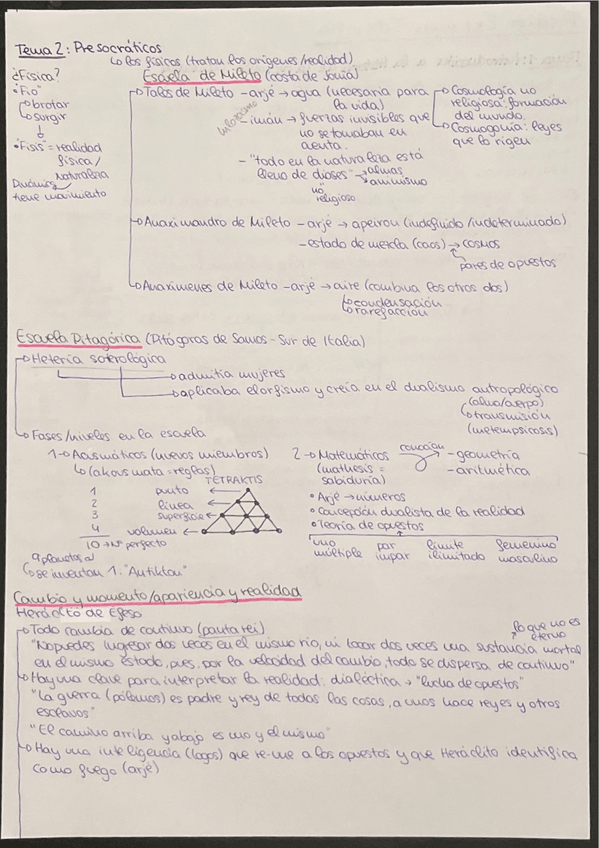 Tema 2: Presocráticos
↳ los físicos (tratan los orígenes/realidad)
¿Física?
"Fio"
↳ brotar
↳ surgir
"Fisis" = realidad física/Naturaleza
Dinámis, tiene movimiento
Escuela de Mileto (costa de Jonia)
Tales de Mileto - arjé → agua (necesaria para
la vida)
hilozoísmo
- imán → fuerzas invisibles que
no se tomaban en
cuenta.
- "todo en la naturaleza está
lleno de dioses" → almas
→ animismo
no religioso
→ Cosmología no
religiosa: formación
del mundo.
→ Cosmogonía: leyes
que lo rigen
Anaximandro de Mileto - arjé → apeiron (indefinido/indeterminado)
- estado de mezcla (caos) → cosmos
pares de opuestos
Anaxímenes de Mileto - arjé → aire (combina los otros dos)
↳ condensación
↳ rarefacción
Escuela Pitagórica (Pitágoras de Samos - Sur de Italia)
Hetería soteriológica
→ admitía mujeres
→ aplicaba el orfismo y creía en el dualismo antropológico
(alma/cuerpo)
↳ transmisión
(metempsicosis)
Fases/niveles en la escuela
1 → Acusmáticos (nuevos miembros)
↳ (akousmata = reglas)
TETRAKTIS
1 punto
2 línea
3 superficie
4 volumen
10 → Nº perfecto
9 planetas
↳ se inventan 1: "Antikton"
2 → Matemáticos
(mathesis =
sabiduría)
conexión
- geometría
- aritmética
• Arjé → números
• Concepción dualista de la realidad
• Teoría de opuestos
uno par límite femenino
múltiple impar ilimitado masculino
Cambio y momento/apariencia y realidad
Heráclito de Efeso
Todo cambia de continuo (panta rei)
lo que no es
eterno
"No puedes ingresar dos veces en el mismo río, ni tocar dos veces una sustancia mortal
en el mismo estado, pues, por la velocidad del cambio, todo se dispersa de continuo"
Hay una clave para interpretar la realidad: dialéctica → "lucha de opuestos"
"La guerra (pólemos) es padre y rey de todas las cosas, a unos hace reyes y otros
esclavos"
"El camino arriba y abajo es uno y el mismo"
Hay una inteligencia (logos) que re-une a los opuestos y que Heráclito identifica
como fuego (arjé)